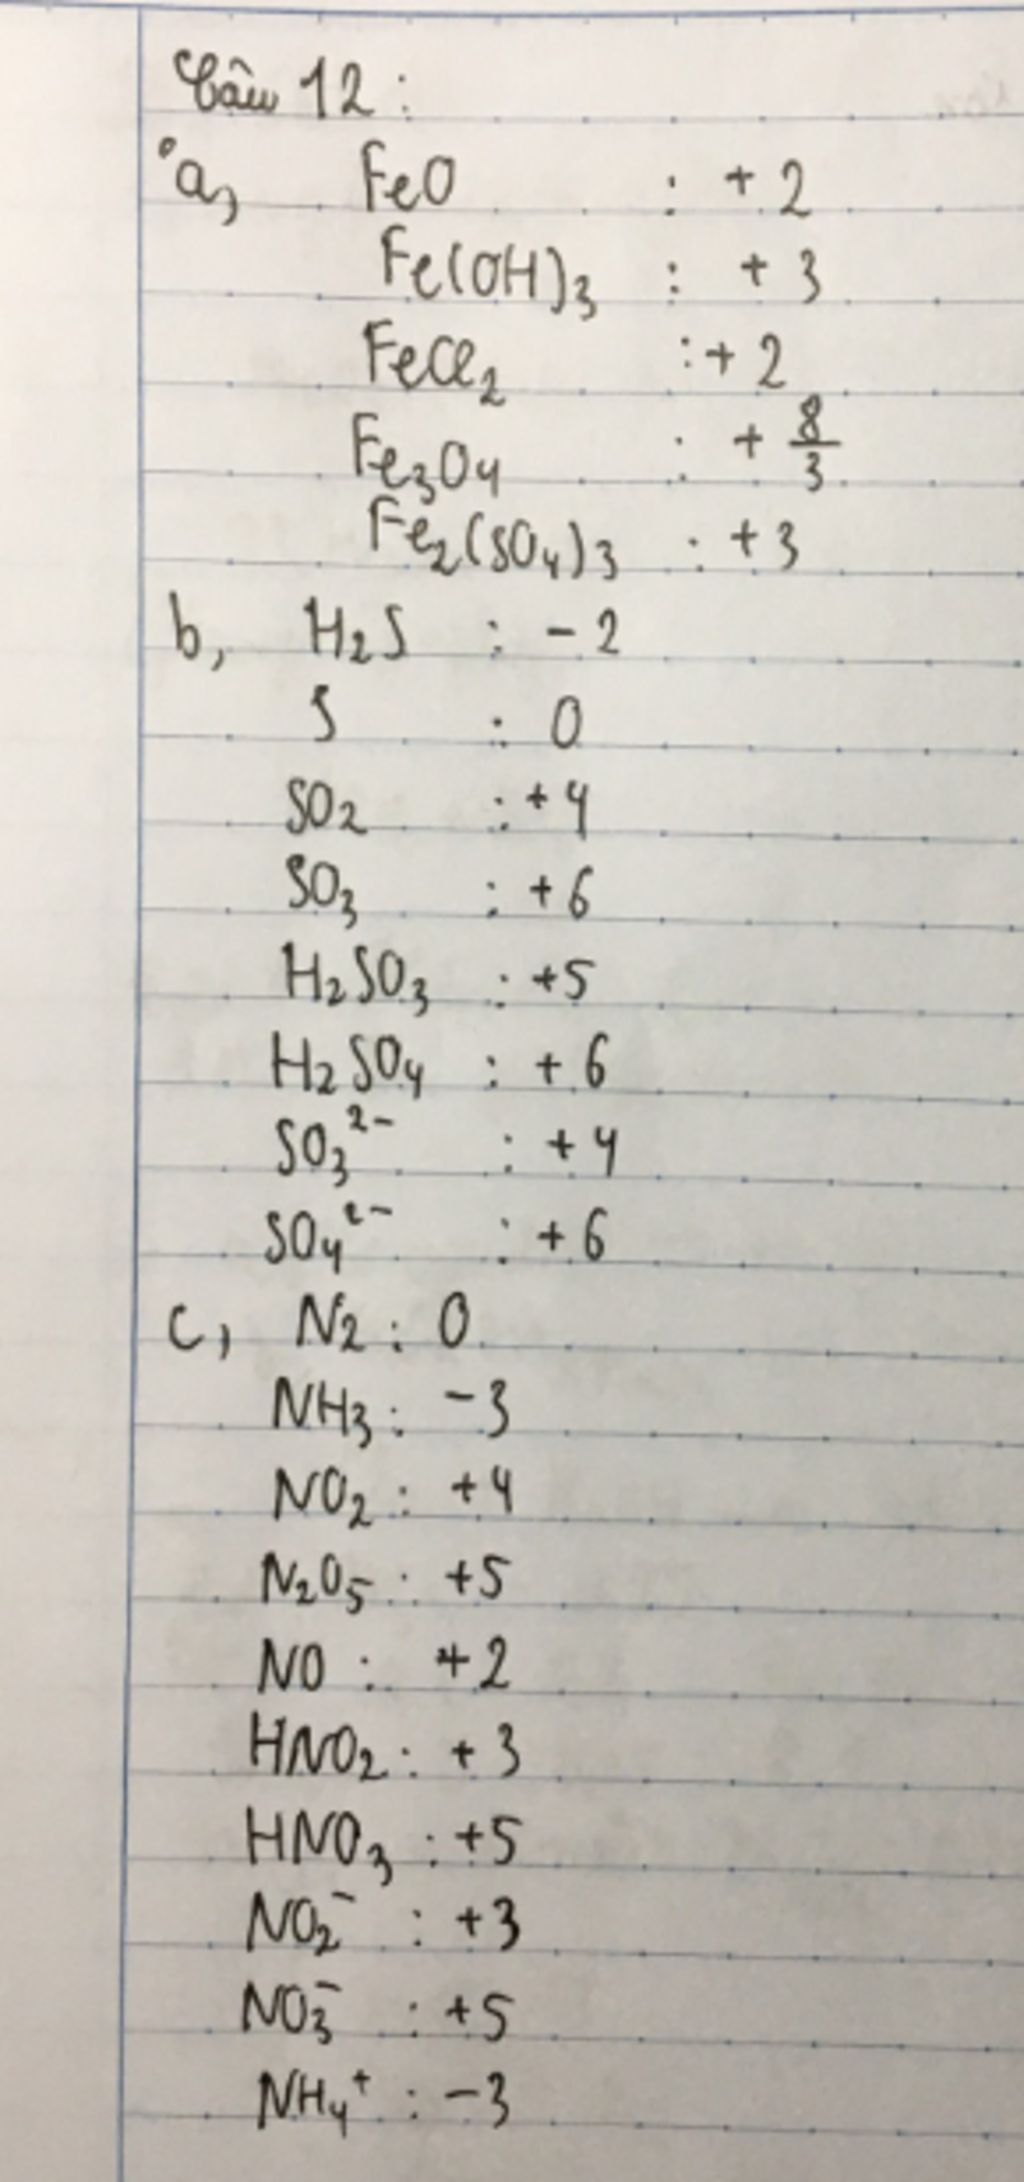 Câu 12 :
a, FeO : +2
Fe(OH)₃ : +3
FeCl₂ : +2
Fe₃O₄ : +8/3
Fe₂(SO₄)₃ : +3
b, H₂S : -2
S : 0
SO₂ : +4
SO₃ : +6
H₂SO₃ : +5
H₂SO₄ : +6
SO₃²⁻ : +4
SO₄²⁻ : +6
c, N₂ : 0
NH₃ : -3
NO₂ : +4
N₂O₅ : +5
NO : +2
HNO₂ : +3
HNO₃ : +5
NO₂⁻ : +3
NO₃⁻ : +5
NH₄⁺ : -3